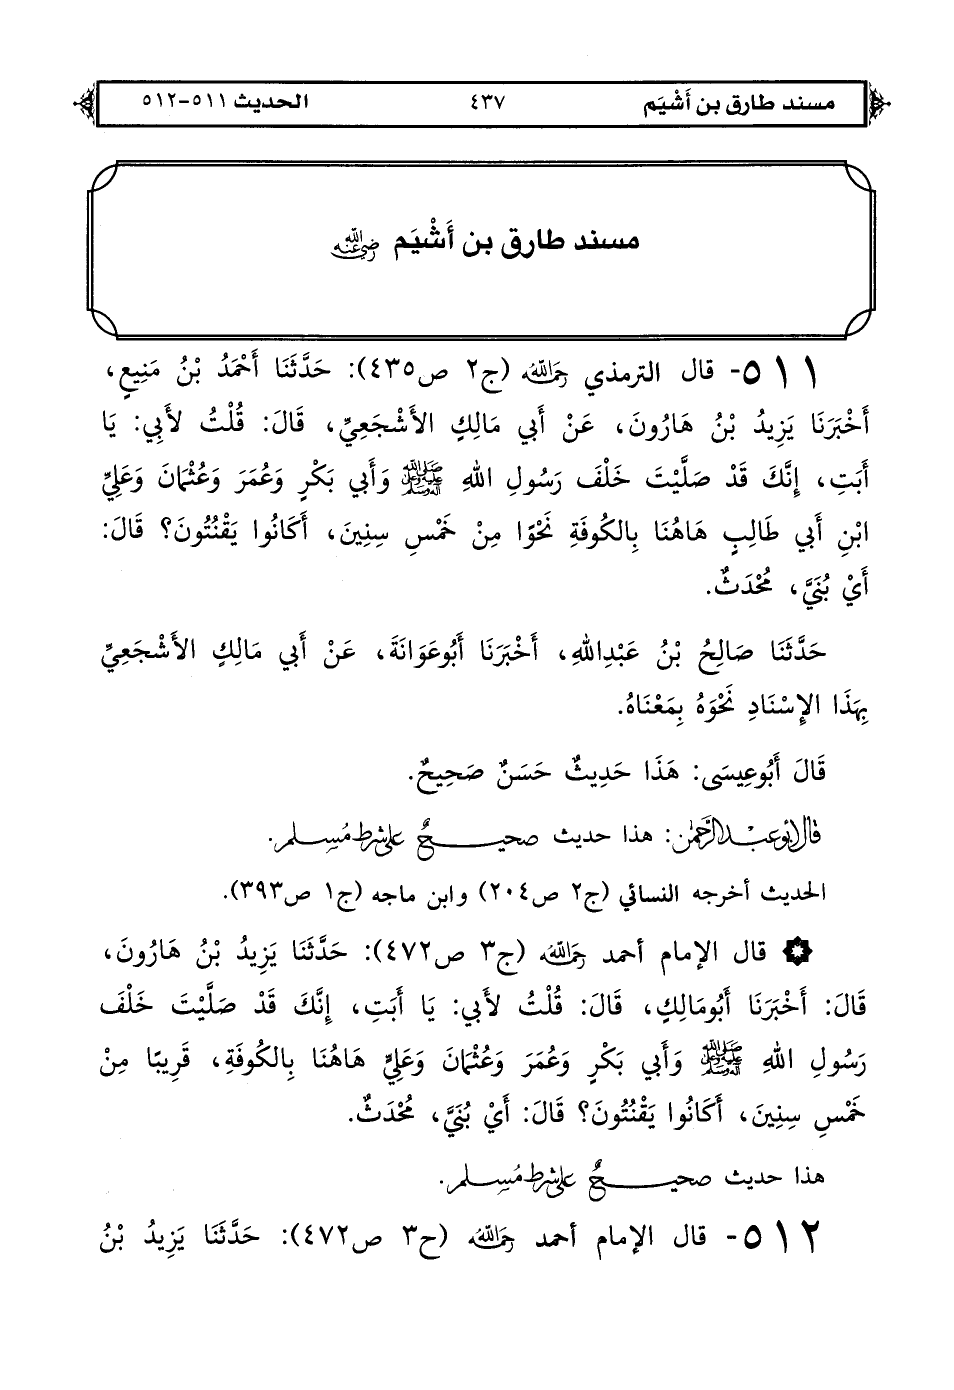 مسند طارق بن أَشْيَم ٤٣٧ الحديث ٥١١-٥١٢
مسند طارق بن أَشْيَم رضي الله عنه
٥١١- قال الترمذي رحمه الله (ج٢ ص٤٣٥): حَدَّثَنَا أَحْمَدُ بْنُ مَنِيعٍ،
أَخْبَرَنَا يَزِيدُ بْنُ هَارُونَ، عَنْ أَبي مَالِكٍ الأَشْجَعِيِّ، قَالَ: قُلْتُ لأَبِي: يَا
أَبَتِ، إِنَّكَ قَدْ صَلَّيْتَ خَلْفَ رَسُولِ اللهِ ﷺ وَأَبي بَكْرٍ وَعُمَرَ وَعُثْمَانَ وَعَلِيِّ
ابْنِ أَبي طَالِبٍ هَاهُنَا بِالكُوفَةِ نَحْوًا مِنْ خَمْسِ سِنِينَ، أَكَانُوا يَقْنُتُونَ؟ قَالَ:
أَيْ بُنَيَّ، مُحْدَثٌ.
حَدَّثَنَا صَالِحُ بْنُ عَبْدِاللهِ، أَخْبَرَنَا أَبُوعَوَانَةَ، عَنْ أَبي مَالِكٍ الأَشْجَعِيِّ
بِهَذَا الإِسْنَادِ نَحْوَهُ بِمَعْنَاهُ.
قَالَ أَبُوعِيسَى: هَذَا حَدِيثٌ حَسَنٌ صَحِيحٌ.
قال أبو عبد الرحمن: هذا حديث صحيحٌ على شرط مُسلم.
الحديث أخرجه النسائي (ج٢ ص٢٠٤) وابن ماجه (ج١ ص٣٩٣).
قال الإمام أحمد رحمه الله (ج٣ ص٤٧٢): حَدَّثَنَا يَزِيدُ بْنُ هَارُونَ،
قَالَ: أَخْبَرَنَا أَبُومَالِكٍ، قَالَ: قُلْتُ لأَبِي: يَا أَبَتِ، إِنَّكَ قَدْ صَلَّيْتَ خَلْفَ
رَسُولِ اللهِ ﷺ وَأَبي بَكْرٍ وَعُمَرَ وَعُثْمَانَ وَعَلِيٍّ هَاهُنَا بِالكُوفَةِ، قَرِيبًا مِنْ
خَمْسِ سِنِينَ، أَكَانُوا يَقْنُتُونَ؟ قَالَ: أَيْ بُنَيَّ، مُحْدَثٌ.
هذا حديث صحيحٌ على شرط مُسلم.
٥١٢- قال الإمام أحمد رحمه الله (ح٣ ص٤٧٢): حَدَّثَنَا يَزِيدُ بْنُ